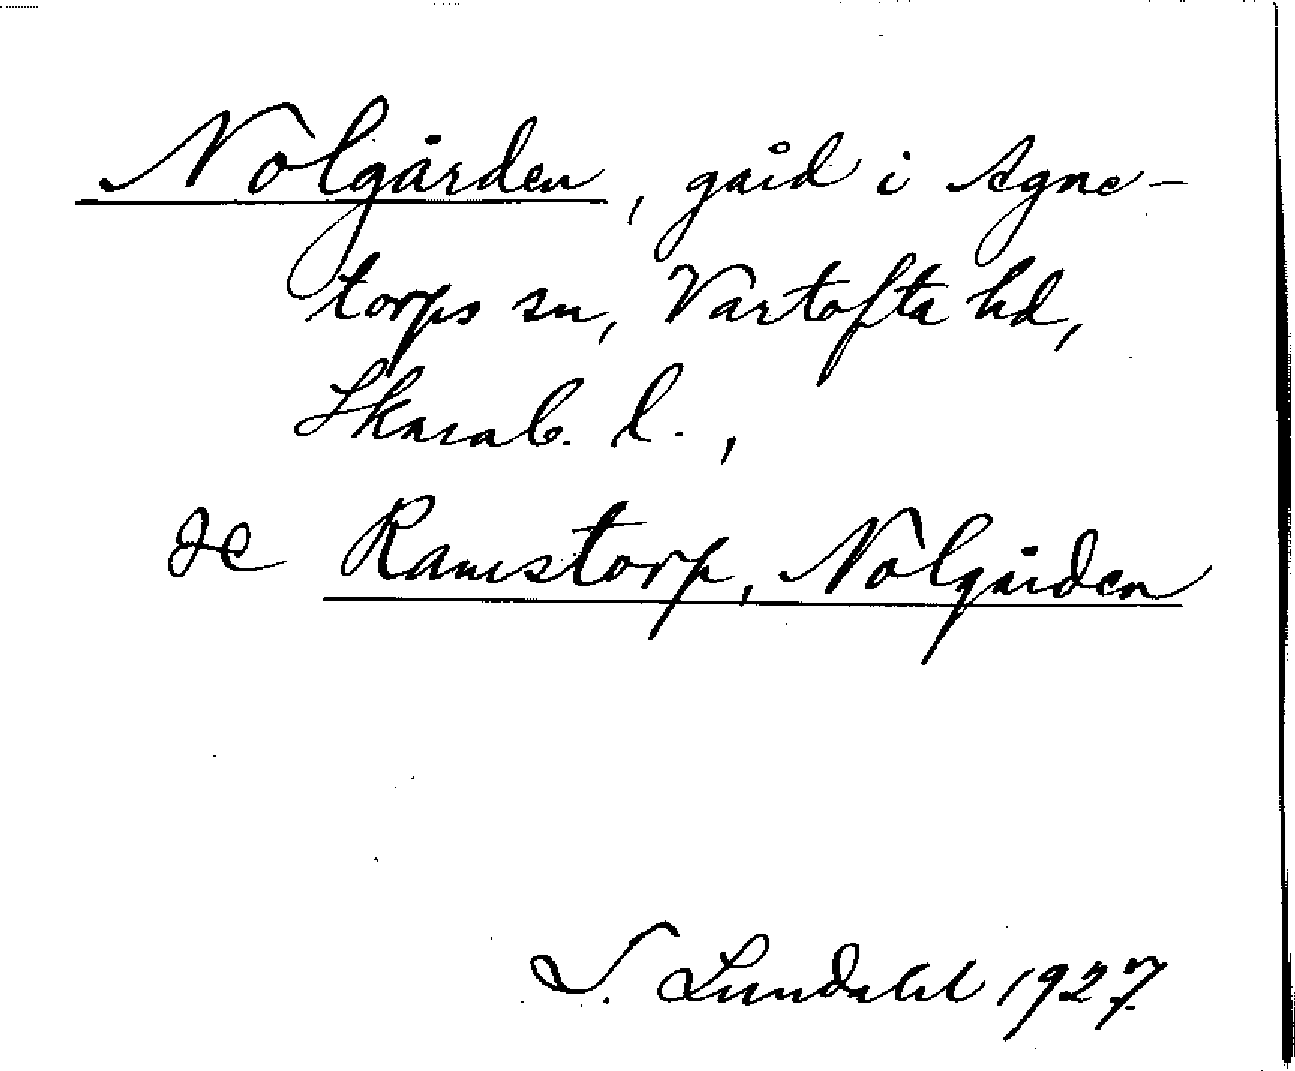 Nolgården, gård i Agne-
torps sn, Vartofta hd,
Skarab. l.,
se Ramstorp, Nolgården
I. Lundahl 1927